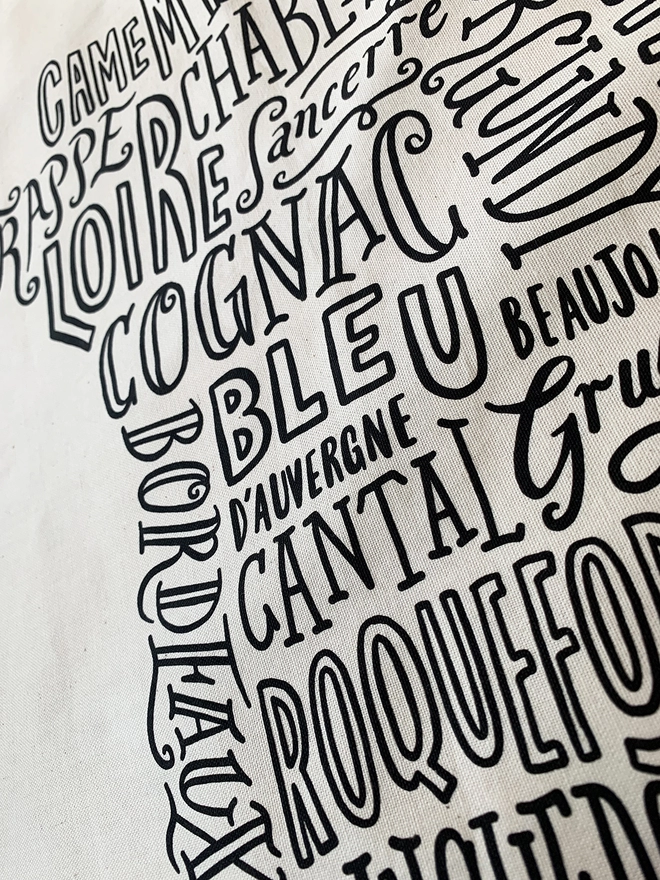 CAMEM
CHABL
RAPPE
Sancerre
LOIRE
GUNDY
COGNAC
BEAUJOL
BLEU
Gru
D'AUVERGNE
CANTAL
BORDEAUX
ROQUEFO